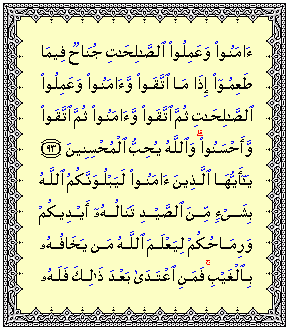 ءَامَنُوا۟ وَعَمِلُوا۟ ٱلصَّـٰلِحَـٰتِ جُنَاحٌ فِيمَا
طَعِمُوٓا۟ إِذَا مَا ٱتَّقَوا۟ وَّءَامَنُوا۟ وَعَمِلُوا۟
ٱلصَّـٰلِحَـٰتِ ثُمَّ ٱتَّقَوا۟ وَّءَامَنُوا۟ ثُمَّ ٱتَّقَوا۟
وَّأَحْسَنُوا۟ ۗ وَٱللَّهُ يُحِبُّ ٱلْمُحْسِنِينَ ﴿٩٣﴾
يَـٰٓأَيُّهَا ٱلَّذِينَ ءَامَنُوا۟ لَيَبْلُوَنَّكُمُ ٱللَّهُ
بِشَىْءٍ مِّنَ ٱلصَّيْدِ تَنَالُهُۥٓ أَيْدِيكُمْ
وَرِمَاحُكُمْ لِيَعْلَمَ ٱللَّهُ مَن يَخَافُهُۥ
بِٱلْغَيْبِ ۚ فَمَنِ ٱعْتَدَىٰ بَعْدَ ذَٰلِكَ فَلَهُۥ